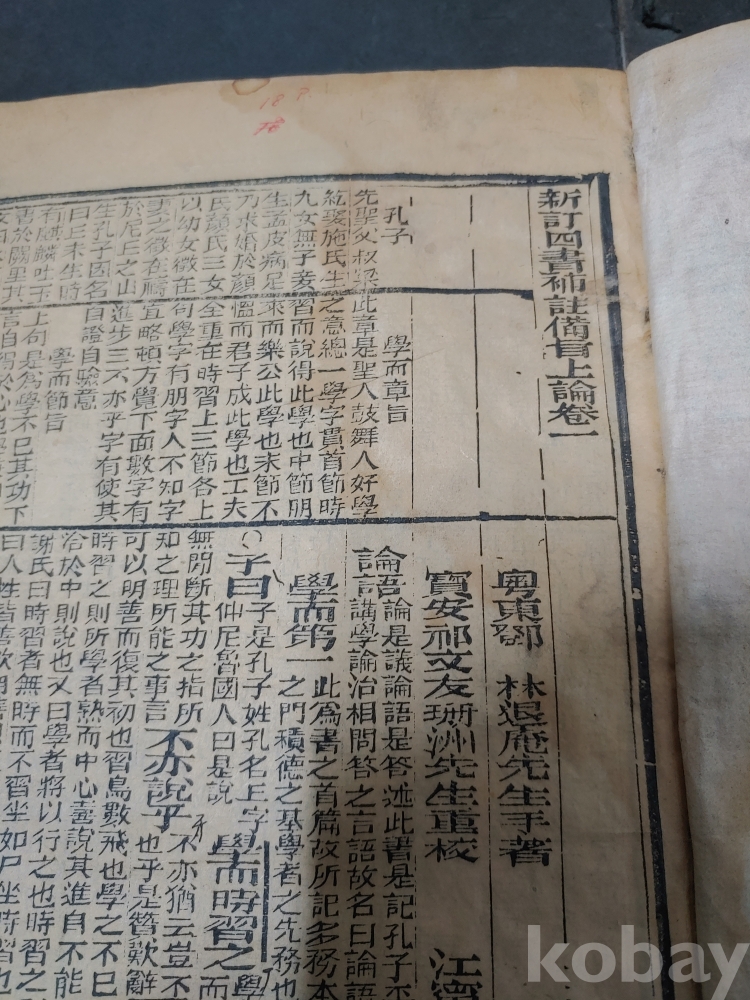 新訂四書補註備旨上論卷一
孔子
先聖父叔梁
紇娶施氏生
九女無子妾
生孟皮病足
乃求婚於顏
氏顏氏三女
以幼女徵在
妻之徵在禱
於尼丘之山
生孔子因名
曰丘未生時
有麒麟吐玉
書於闕里其
學而章旨
此章是聖人鼓舞人好學
之意總一學字貫首節時
習而說得此學也中節朋
來而樂公此學也末節不
慍而君子成此學也工夫
全重在時習上三節各上
句學字有朋字人不知字
宜略頓方覺下面數字有
進步三不亦乎字有使其
自證自驗意
學而節旨
上句是為學不已其功下
粵東鄧 林退庵先生手著
寶安祁文友珊洲先生重校
江寧
論語論是議論語是答述此書是記孔子平
講學論治相問答之言語故名曰論語
學而第一此為書之首篇故所記多務本
之門積德之基學者之先務也
○子曰子是孔子姓孔名丘字
仲尼魯國人曰是說
學而時習之學
而
無間斷其功之指所
知之理所能之事言
不亦說乎不亦猶云豈不
也乎是贊歎辭
可以明善而復其初也習鳥數飛也學之不已
時習之則所學者熟而中心喜說其進自不能
洽於中則說也又曰學者將以行之也時習之
謝氏曰時習者無時而不習坐如尸坐時習
曰人性皆善
18
kobay